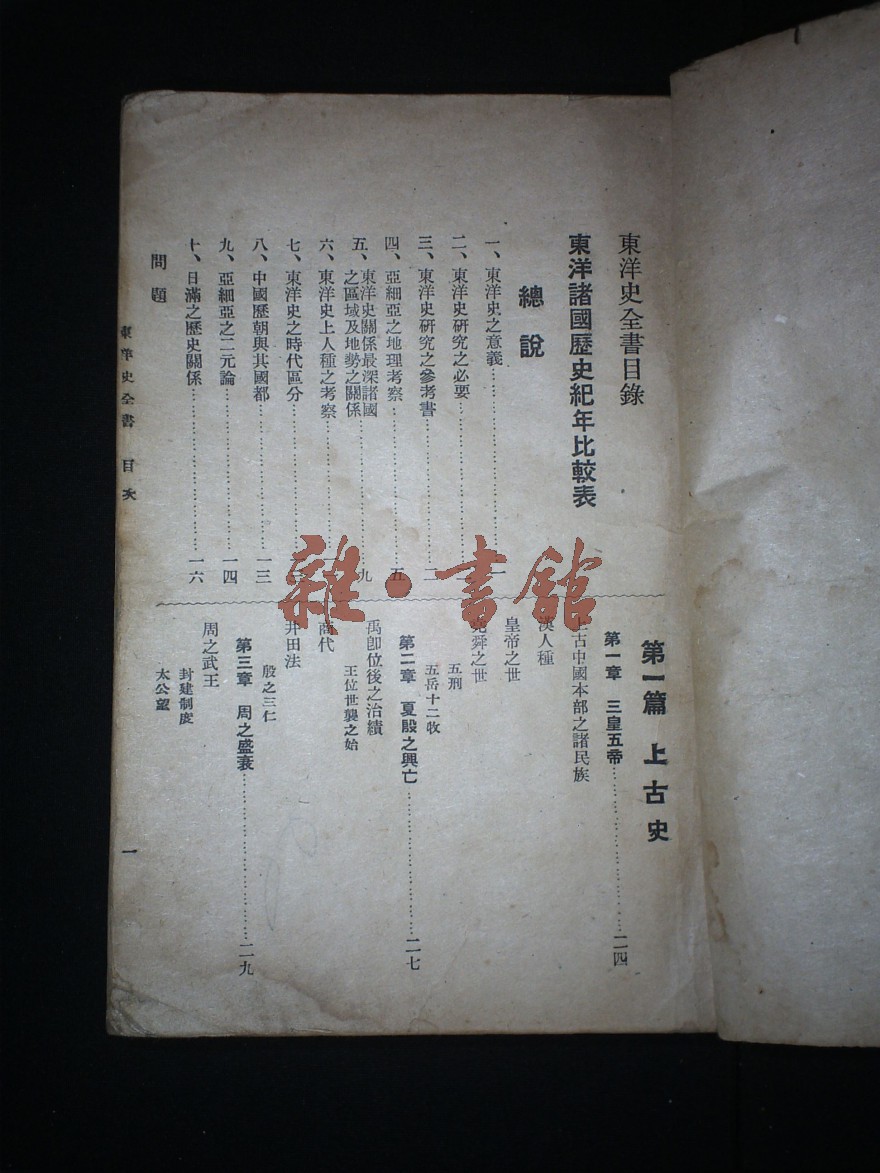 東洋史全書目錄
東洋諸國歷史紀年比較表
總說
一、東洋史之意義
二、東洋史研究之必要
三、東洋史研究之參考書 二
四、亞細亞之地理考察 五
五、東洋史關係最深諸國
之區域及地勢之關係 九
六、東洋史上人種之考察
七、東洋史之時代區分
八、中國歷朝與其國都 一三
九、亞細亞之二元論 一四
十、日滿之歷史關係 一六
問題
第一篇 上古史
第一章 三皇五帝 二四
上古中國本部之諸民族
漢人種
皇帝之世
堯舜之世
五刑
五岳十二收
第二章 夏殷之興亡 二七
禹卽位後之治績
王位世襲之始
商代
井田法
殷之三仁
第三章 周之盛衰 二九
周之武王
封建制度
太公望
東洋史全書 目次 一
雜·書館